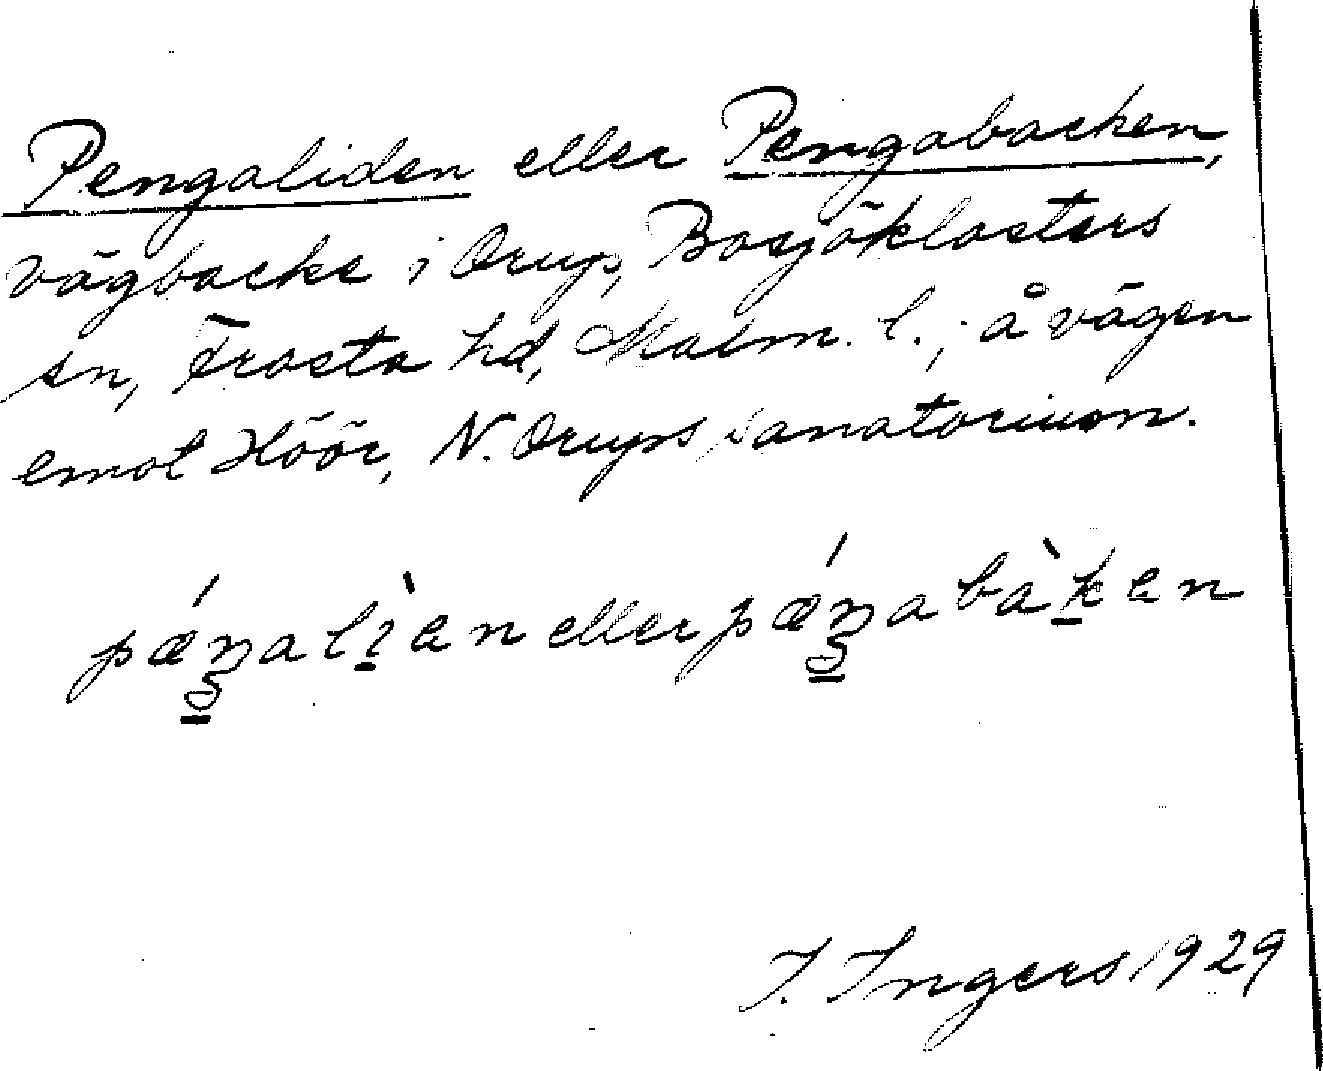 Pengaliden eller Pengabacken,
vägbacke i Orup, Bosjöklosters
sn, Frosta hd, Malm. l.; å vägen
emot Höör, N. Orups sanatorium.
pǽŋalìen eller pǽŋabàken
I. Ingers 1929